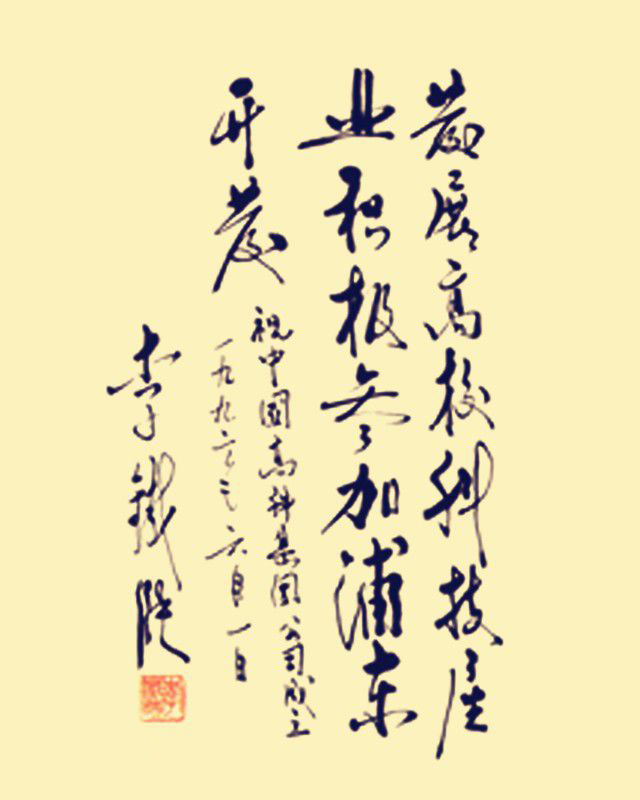 发展高校科技产
业积极参加浦东
开发
祝中国高科集团公司成立
一九九二年六月一日
李铁映